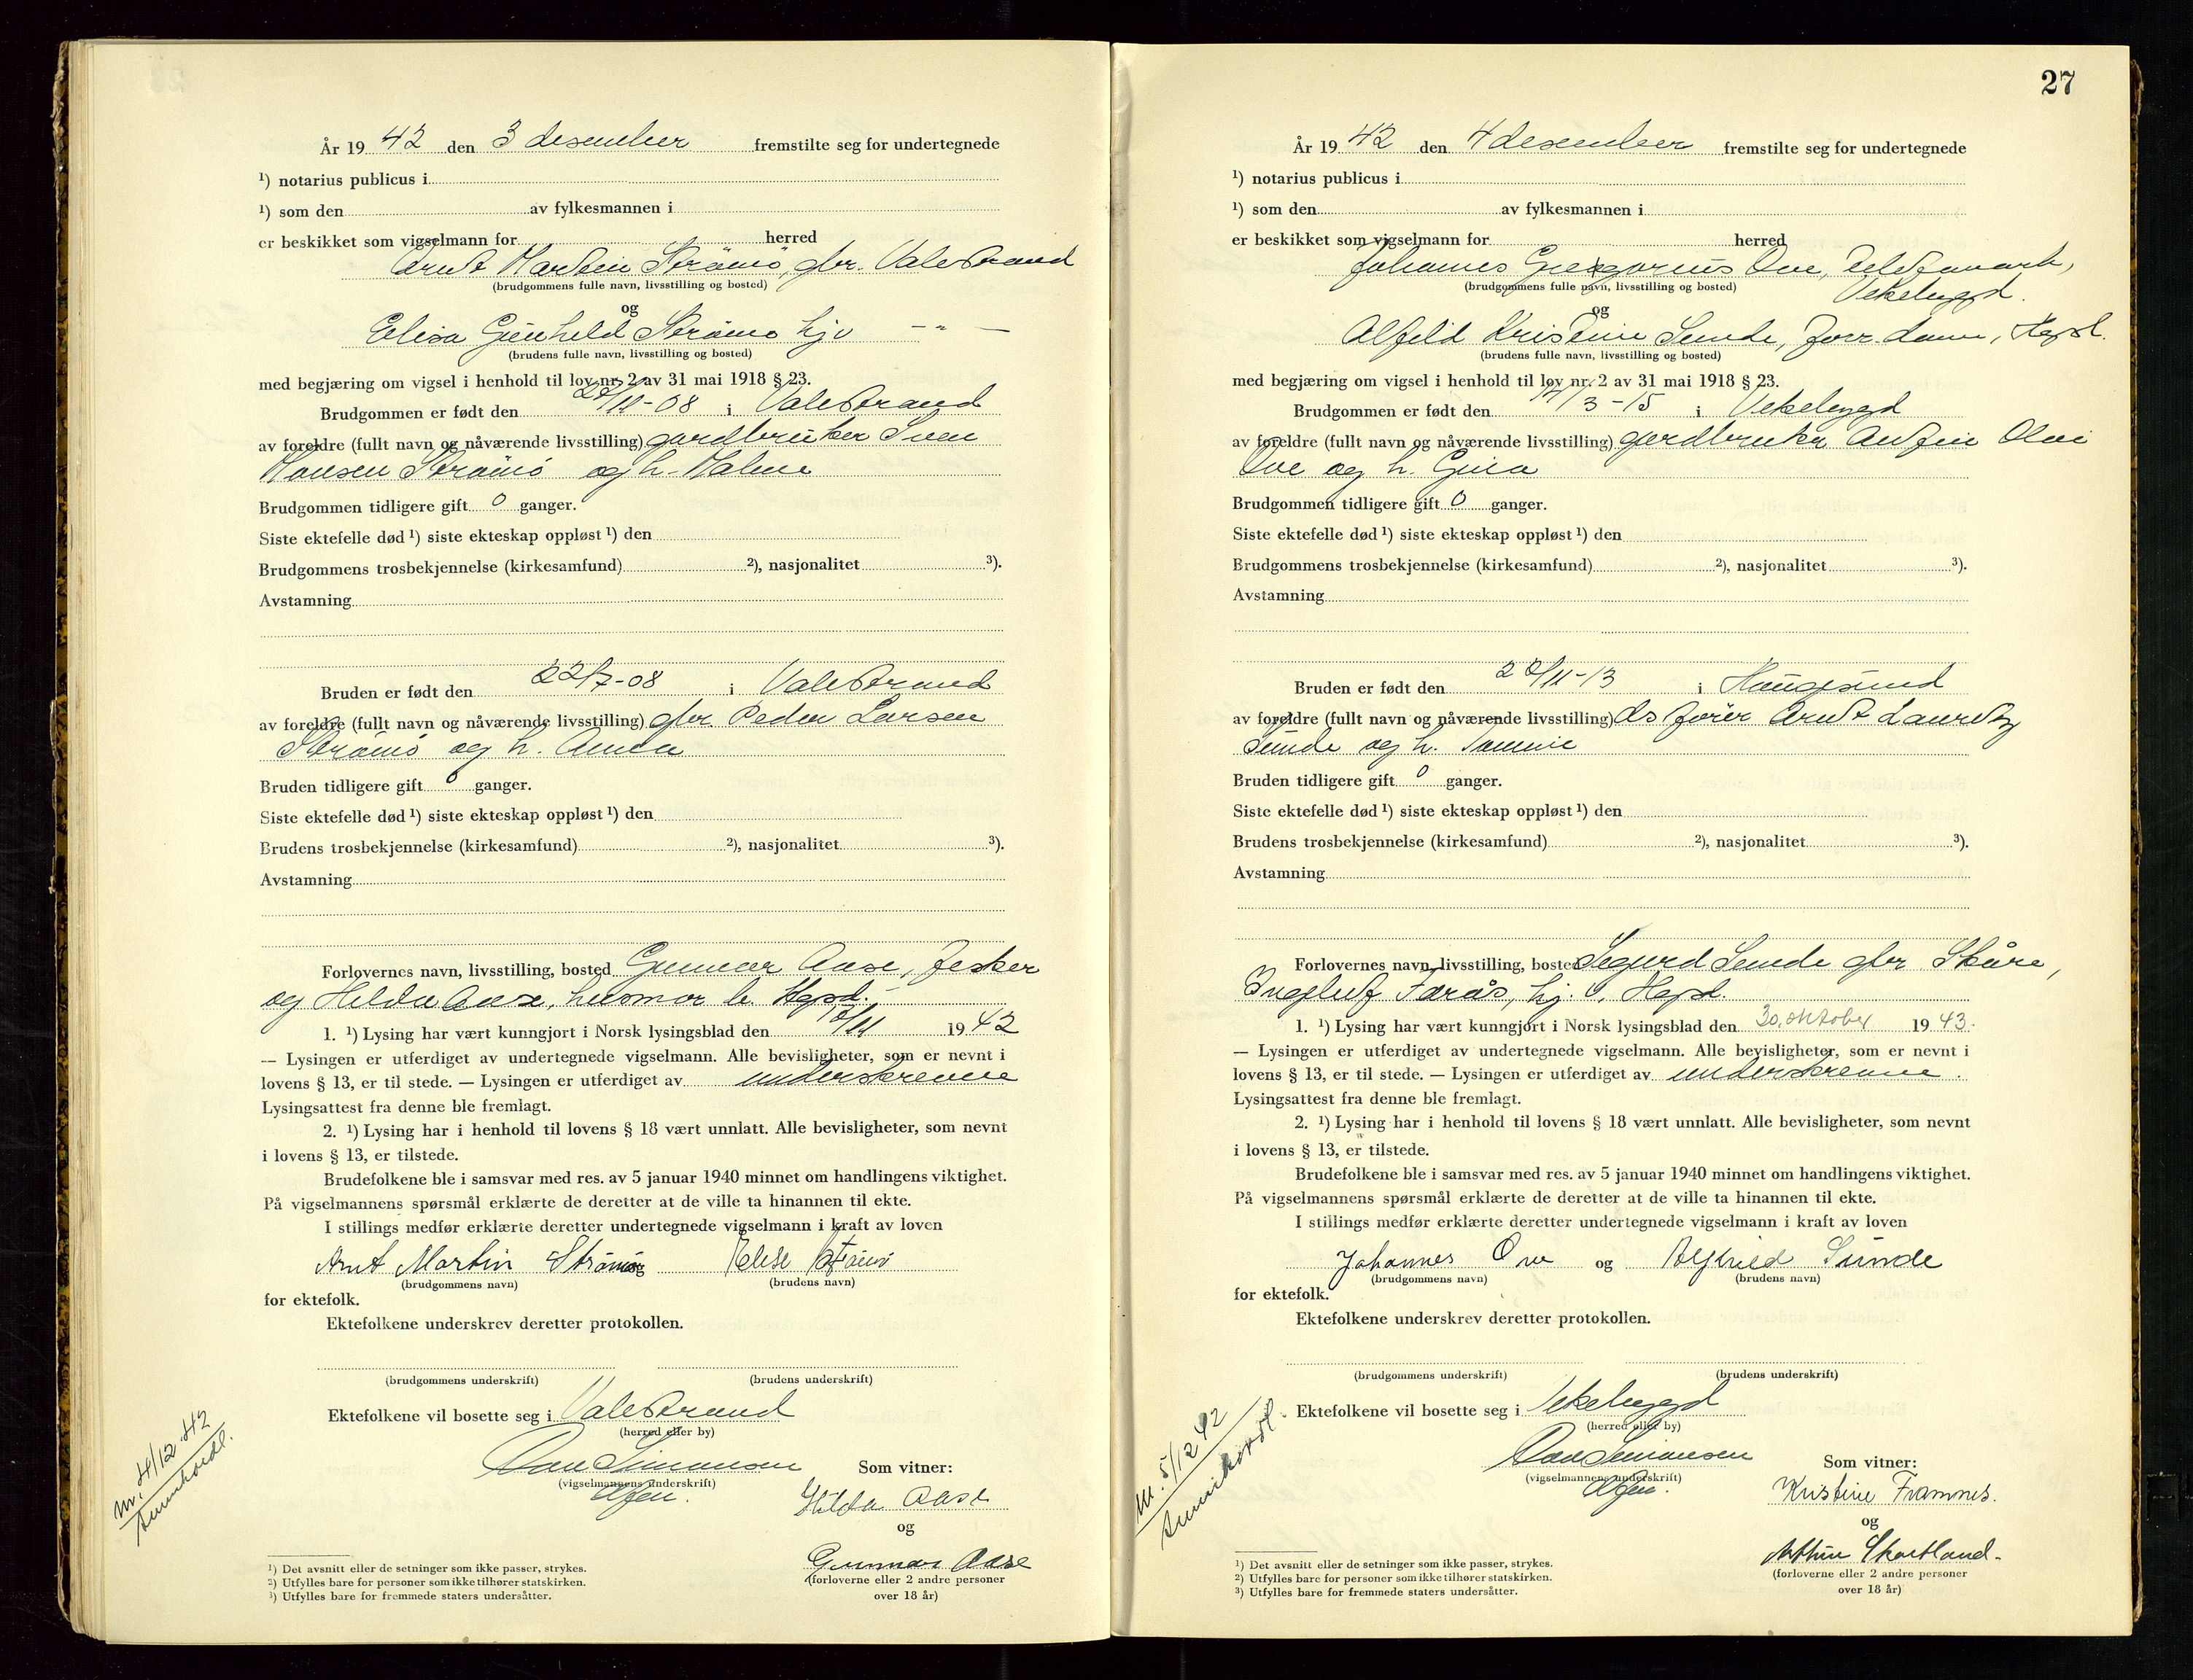 År 19 42 den 3 desember fremstilte seg for undertegnede
¹) notarius publicus i
¹) som den av fylkesmannen i
er beskikket som vigselmann for herred
Arnt Martin Strømø, gbr. Valestrand
(brudgommens fulle navn, livsstilling og bosted)
og
Elisa Gunhild Strømø hjv — " —
(brudens fulle navn, livsstilling og bosted)
med begjæring om vigsel i henhold til lov nr. 2 av 31 mai 1918 § 23.
Brudgommen er født den /11-08 i Valestrand
av foreldre (fullt navn og nåværende livsstilling) gardbruker Sven
Hansen Strømø og h. Malene
Brudgommen tidligere gift 0 ganger.
Siste ektefelle død ¹) siste ekteskap oppløst ¹) den
Brudgommens trosbekjennelse (kirkesamfund) ²), nasjonalitet ³).
Avstamning
Bruden er født den 22/7-08 i Valestrand
av foreldre (fullt navn og nåværende livsstilling) gbr. Peder Larsen
Strømø og h. Anna
Bruden tidligere gift 0 ganger.
Siste ektefelle død ¹) siste ekteskap oppløst ¹) den
Brudens trosbekjennelse (kirkesamfund) ²), nasjonalitet ³).
Avstamning
Forlovernes navn, livsstilling, bosted Gunnar Aase, fisker
og Hilda Aase, husmor b. Hgsd.
1. ¹) Lysing har vært kunngjort i Norsk lysingsblad den /11 19 42
— Lysingen er utferdiget av undertegnede vigselmann. Alle bevisligheter, som er nevnt i
lovens § 13, er til stede. — Lysingen er utferdiget av underskrevne
Lysingsattest fra denne ble fremlagt.
2. ¹) Lysing har i henhold til lovens § 18 vært unnlatt. Alle bevisligheter, som nevnt
i lovens § 13, er tilstede.
Brudefolkene ble i samsvar med res. av 5 januar 1940 minnet om handlingens viktighet.
På vigselmannens spørsmål erklærte de deretter at de ville ta hinannen til ekte.
I stillings medfør erklærte deretter undertegnede vigselmann i kraft av loven
Arnt Martin Strømø og Elise Strømø
(brudgommens navn) (brudens navn)
for ektefolk.
Ektefolkene underskrev deretter protokollen.
(brudgommens underskrift) (brudens underskrift)
Ektefolkene vil bosette seg i Valestrand
(herred eller by)
Simonsen Som vitner:
(vigselmannens underskrift)
Hilda Aase
og
Gunnar Aase
(forloverne eller 2 andre personer
over 18 år)
M. 4/12 42
Sunnhordl.
¹) Det avsnitt eller de setninger som ikke passer, strykes.
²) Utfylles bare for personer som ikke tilhører statskirken.
³) Utfylles bare for fremmede staters undersåtter.
27
År 19 42 den 4 desember fremstilte seg for undertegnede
¹) notarius publicus i
¹) som den av fylkesmannen i
er beskikket som vigselmann for herred
Johannes Gregorius Ove,
Vikebygd.
(brudgommens fulle navn, livsstilling og bosted)
og
Alfild Kristine Sunde, forr. dame, Hgsd.
(brudens fulle navn, livsstilling og bosted)
med begjæring om vigsel i henhold til lov nr. 2 av 31 mai 1918 § 23.
Brudgommen er født den /3-15 i Vikebygd
av foreldre (fullt navn og nåværende livsstilling) gardbruker Anfin Olai
Ove og h. Gina
Brudgommen tidligere gift 0 ganger.
Siste ektefelle død ¹) siste ekteskap oppløst ¹) den
Brudgommens trosbekjennelse (kirkesamfund) ²), nasjonalitet ³).
Avstamning
Bruden er født den 22/11-13 i Haugesund
av foreldre (fullt navn og nåværende livsstilling) ds fører Arnt Lauritz
Sunde og h. Tomine
Bruden tidligere gift 0 ganger.
Siste ektefelle død ¹) siste ekteskap oppløst ¹) den
Brudens trosbekjennelse (kirkesamfund) ²), nasjonalitet ³).
Avstamning
Forlovernes navn, livsstilling, bosted Sigurd Sunde gbr Skåre,
Ingeluf Førås, hj. Hgsd.
1. ¹) Lysing har vært kunngjort i Norsk lysingsblad den 30. oktober 19 43.
— Lysingen er utferdiget av undertegnede vigselmann. Alle bevisligheter, som er nevnt i
lovens § 13, er til stede. — Lysingen er utferdiget av underskrevne.
Lysingsattest fra denne ble fremlagt.
2. ¹) Lysing har i henhold til lovens § 18 vært unnlatt. Alle bevisligheter, som nevnt
i lovens § 13, er tilstede.
Brudefolkene ble i samsvar med res. av 5 januar 1940 minnet om handlingens viktighet.
På vigselmannens spørsmål erklærte de deretter at de ville ta hinannen til ekte.
I stillings medfør erklærte deretter undertegnede vigselmann i kraft av loven
Johannes Ove og Alfhild Sunde
(brudgommens navn) (brudens navn)
for ektefolk.
Ektefolkene underskrev deretter protokollen.
(brudgommens underskrift) (brudens underskrift)
Ektefolkene vil bosette seg i Vikebygd
(herred eller by)
Simonsen Som vitner:
(vigselmannens underskrift)
Kristine Framnes.
og
Arthur Skartland.
(forloverne eller 2 andre personer
over 18 år)
M. 5/12 42
Sunnhordl.
¹) Det avsnitt eller de setninger som ikke passer, strykes.
²) Utfylles bare for personer som ikke tilhører statskirken.
³) Utfylles bare for fremmede staters undersåtter.